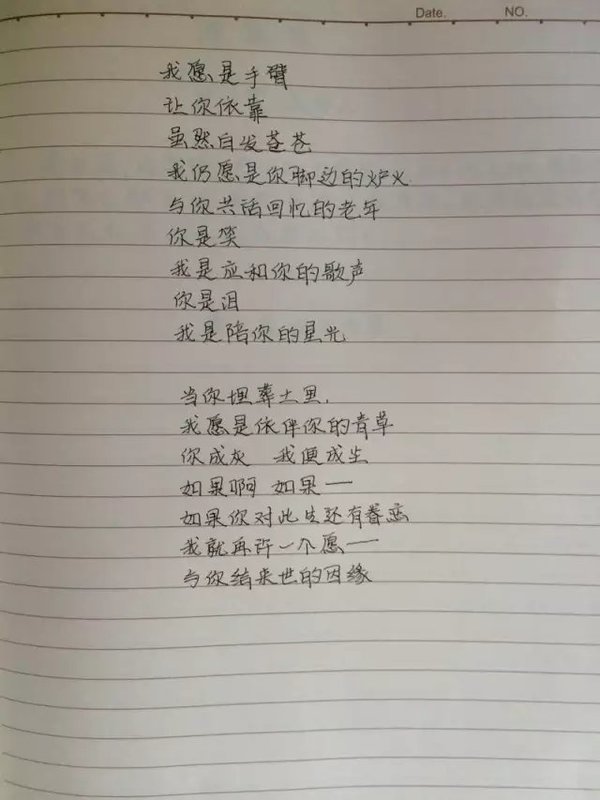 Date. NO.
我愿是手臂
让你依靠
虽然白发苍苍
我仍愿是你脚边的炉火
与你共话回忆的老年
你是笑
我是应和你的歌声
你是泪
我是陪你的星光
当你埋葬土里.
我愿是依伴你的青草
你成灰 我便成尘
如果啊 如果——
如果你对此生还有眷恋
我就再许一个愿——
与你结来世的因缘